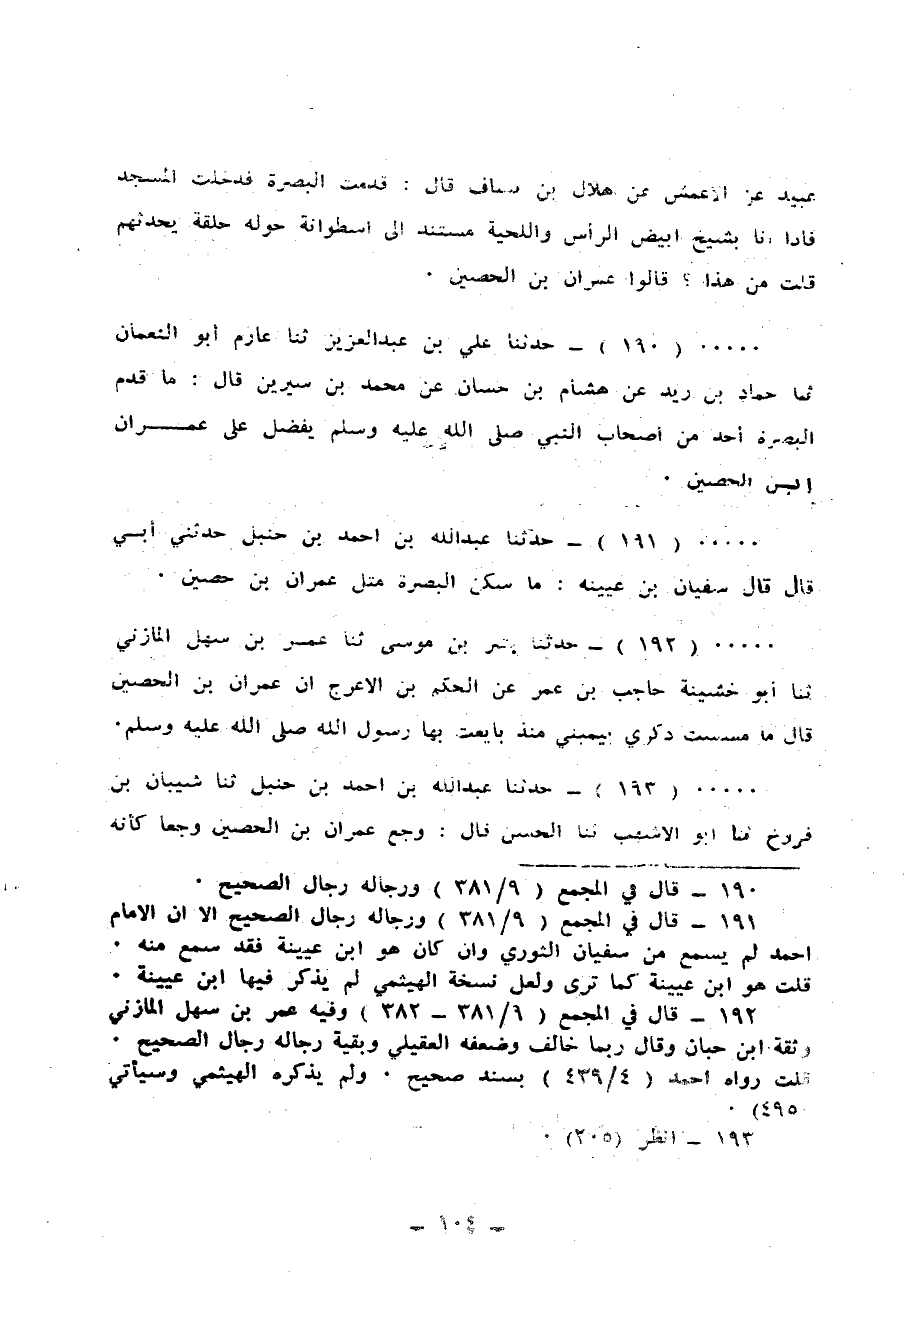 عبيد عن الاعمش عن هلال بن يساف قال : قدمت البصرة فدخلت المسجد
فاذا انا بشيخ ابيض الرأس واللحية مستند الى اسطوانة حوله حلقة يحدثهم
قلت من هذا ؟ قالوا عمران بن الحصين ٠
٠٠٠٠٠ ( ١٩٠ ) ــ حدثنا علي بن عبدالعزيز ثنا عارم أبو النعمان
ثنا حماد بن زيد عن هشام بن حسان عن محمد بن سيرين قال : ما قدم
البصرة أحد من أصحاب النبي صلى الله عليه وسلم يفضل على عمـــــران
ابن الحصين ٠
٠٠٠٠٠ ( ١٩١ ) ــ حدثنا عبدالله بن احمد بن حنبل حدثني أبــي
قال قال سفيان بن عيينه : ما سكن البصرة مثل عمران بن حصين ٠
٠٠٠٠٠ ( ١٩٢ ) ــ حدثنا بن موسى ثنا عمــر بن سهل المازني
ثنا أبو خشينة حاجب بن عمر عن الحكم بن الاعرج ان عمران بن الحصين
قال ما مسست ذكري بيميني منذ بايعت بها رسول الله صلى الله عليه وسلم٠
٠٠٠٠٠ ( ١٩٣ ) ــ حدثنا عبدالله بن احمد بن حنبل ثنا شيبان بن
فروخ ثنا ابو الاشهب ثنا الحسن قال : وجع عمران بن الحصين وجعا كأنه
١٩٠ ــ قال في المجمع ( ٣٨١/٩ ) ورجاله رجال الصحيح ٠
١٩١ ــ قال في المجمع ( ٣٨١/٩ ) ورجاله رجال الصحيح الا ان الامام
احمد لم يسمع من سفيان الثوري وان كان هو ابن عيينة فقد سمع منه ٠
قلت هو ابن عيينة كما ترى ولعل نسخة الهيثمي لم يذكر فيها ابن عيينة ٠
١٩٢ ــ قال في المجمع ( ٣٨١/٦ ــ ٣٨٢ ) وفيه عمر بن سهل المازني
وثقة ابن حبان وقال ربما خالف وضعفه العقيلي وبقية رجاله رجال الصحيح ٠
قلت رواه احمد ( ٤٣٩/٤ ) بسند صحيح ٠ ولم يذكره الهيثمي وسيأتي
٤٩٥) ٠
١٩٣ ــ انظر (٢٠٥) ٠
ــ ١٠٤ ــ